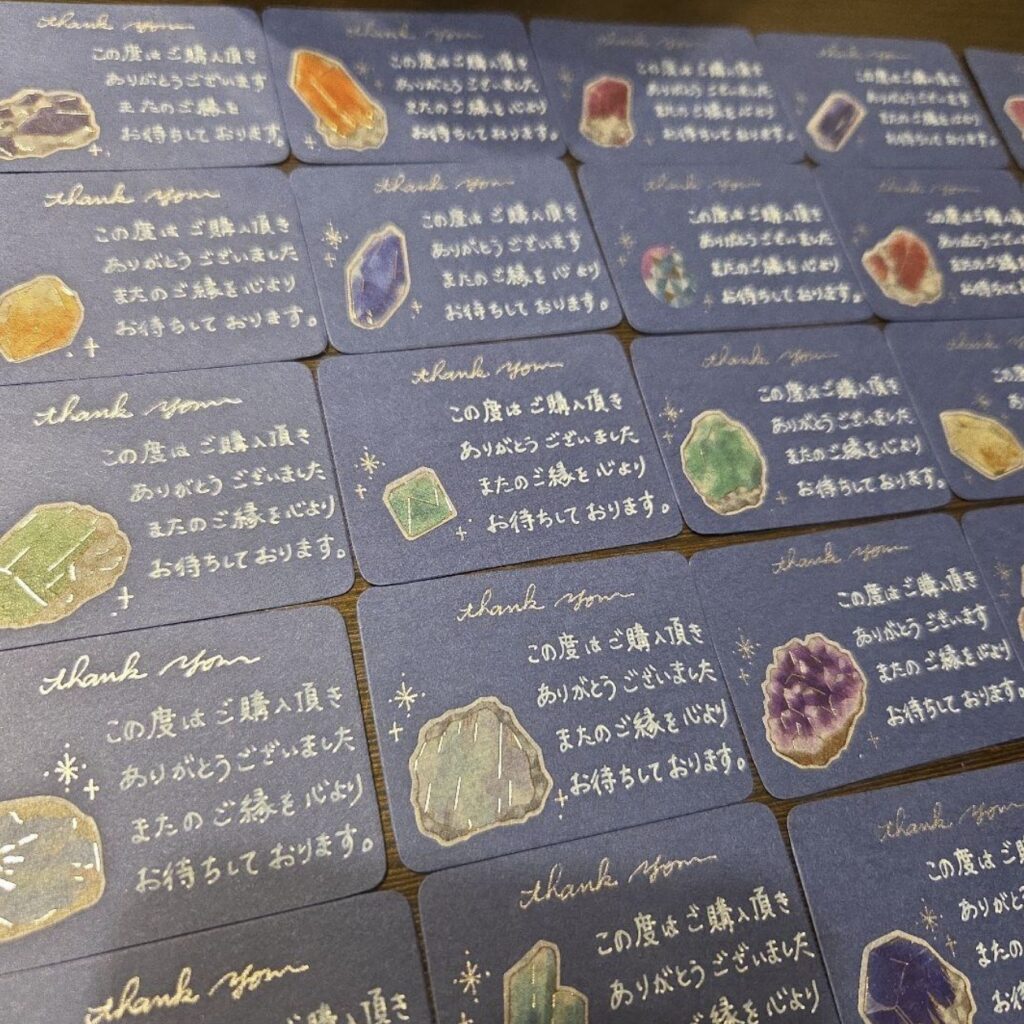 thank you
この度はご購入頂き
ありがとうございます
またのご縁を
お待ちしております。
thank you
この度はご購入頂き
ありがとうございました
またのご縁を心より
お待ちしております。
thank you
この度はご購入頂き
ありがとうございました
またのご縁を心より
お待ちしております。
thank you
この度はご購入頂き
ありがとうございます
またのご縁を心より
お待ちしております。
thank you
この度はご購入頂き
ありがとうございました
またのご縁を心より
お待ちしております。
thank you
この度はご購入頂き
ありがとうございます
またのご縁を心より
お待ちしております。
thank you
この度はご購入頂き
ありがとうございました
またのご縁を心より
お待ちしております。
thank you
この度はご購入頂き
ありがとうございました
またのご縁を心より
お待ちしてお
thank you
この度はご購入頂き
ありがとうございました
またのご縁を心より
お待ちしております。
thank you
この度はご購入頂き
ありがとうございました
またのご縁を心より
お待ちしております。
thank you
この度はご購入頂き
ありがとうございました
またのご縁を心より
お待ちしております。
thank you
thank you
この度はご購入頂き
ありがとうございました
またのご縁を心より
お待ちしております。
thank you
この度はご購入頂き
ありがとうございました
またのご縁を心より
お待ちしております。
thank you
この度はご購入頂き
ありがとうございます
またのご縁を心より
お待ちしております。
thank you
thank you
この度はご購入頂き
ありがとうございました
またのご縁を心より
thank you
この度はご
ありがと
またの
お待ち